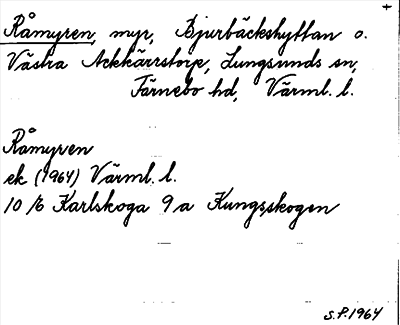 Råmyren, myr, Bjurbäckshyttan o.
Västra Ackkärrstorp, Lungsunds sn,
Färnebo hd, Värml. l.
Råmyren
ek (1964) Värml. l.
10 /6 Karlskoga 9 a Kungsskogen
S.P. 1964